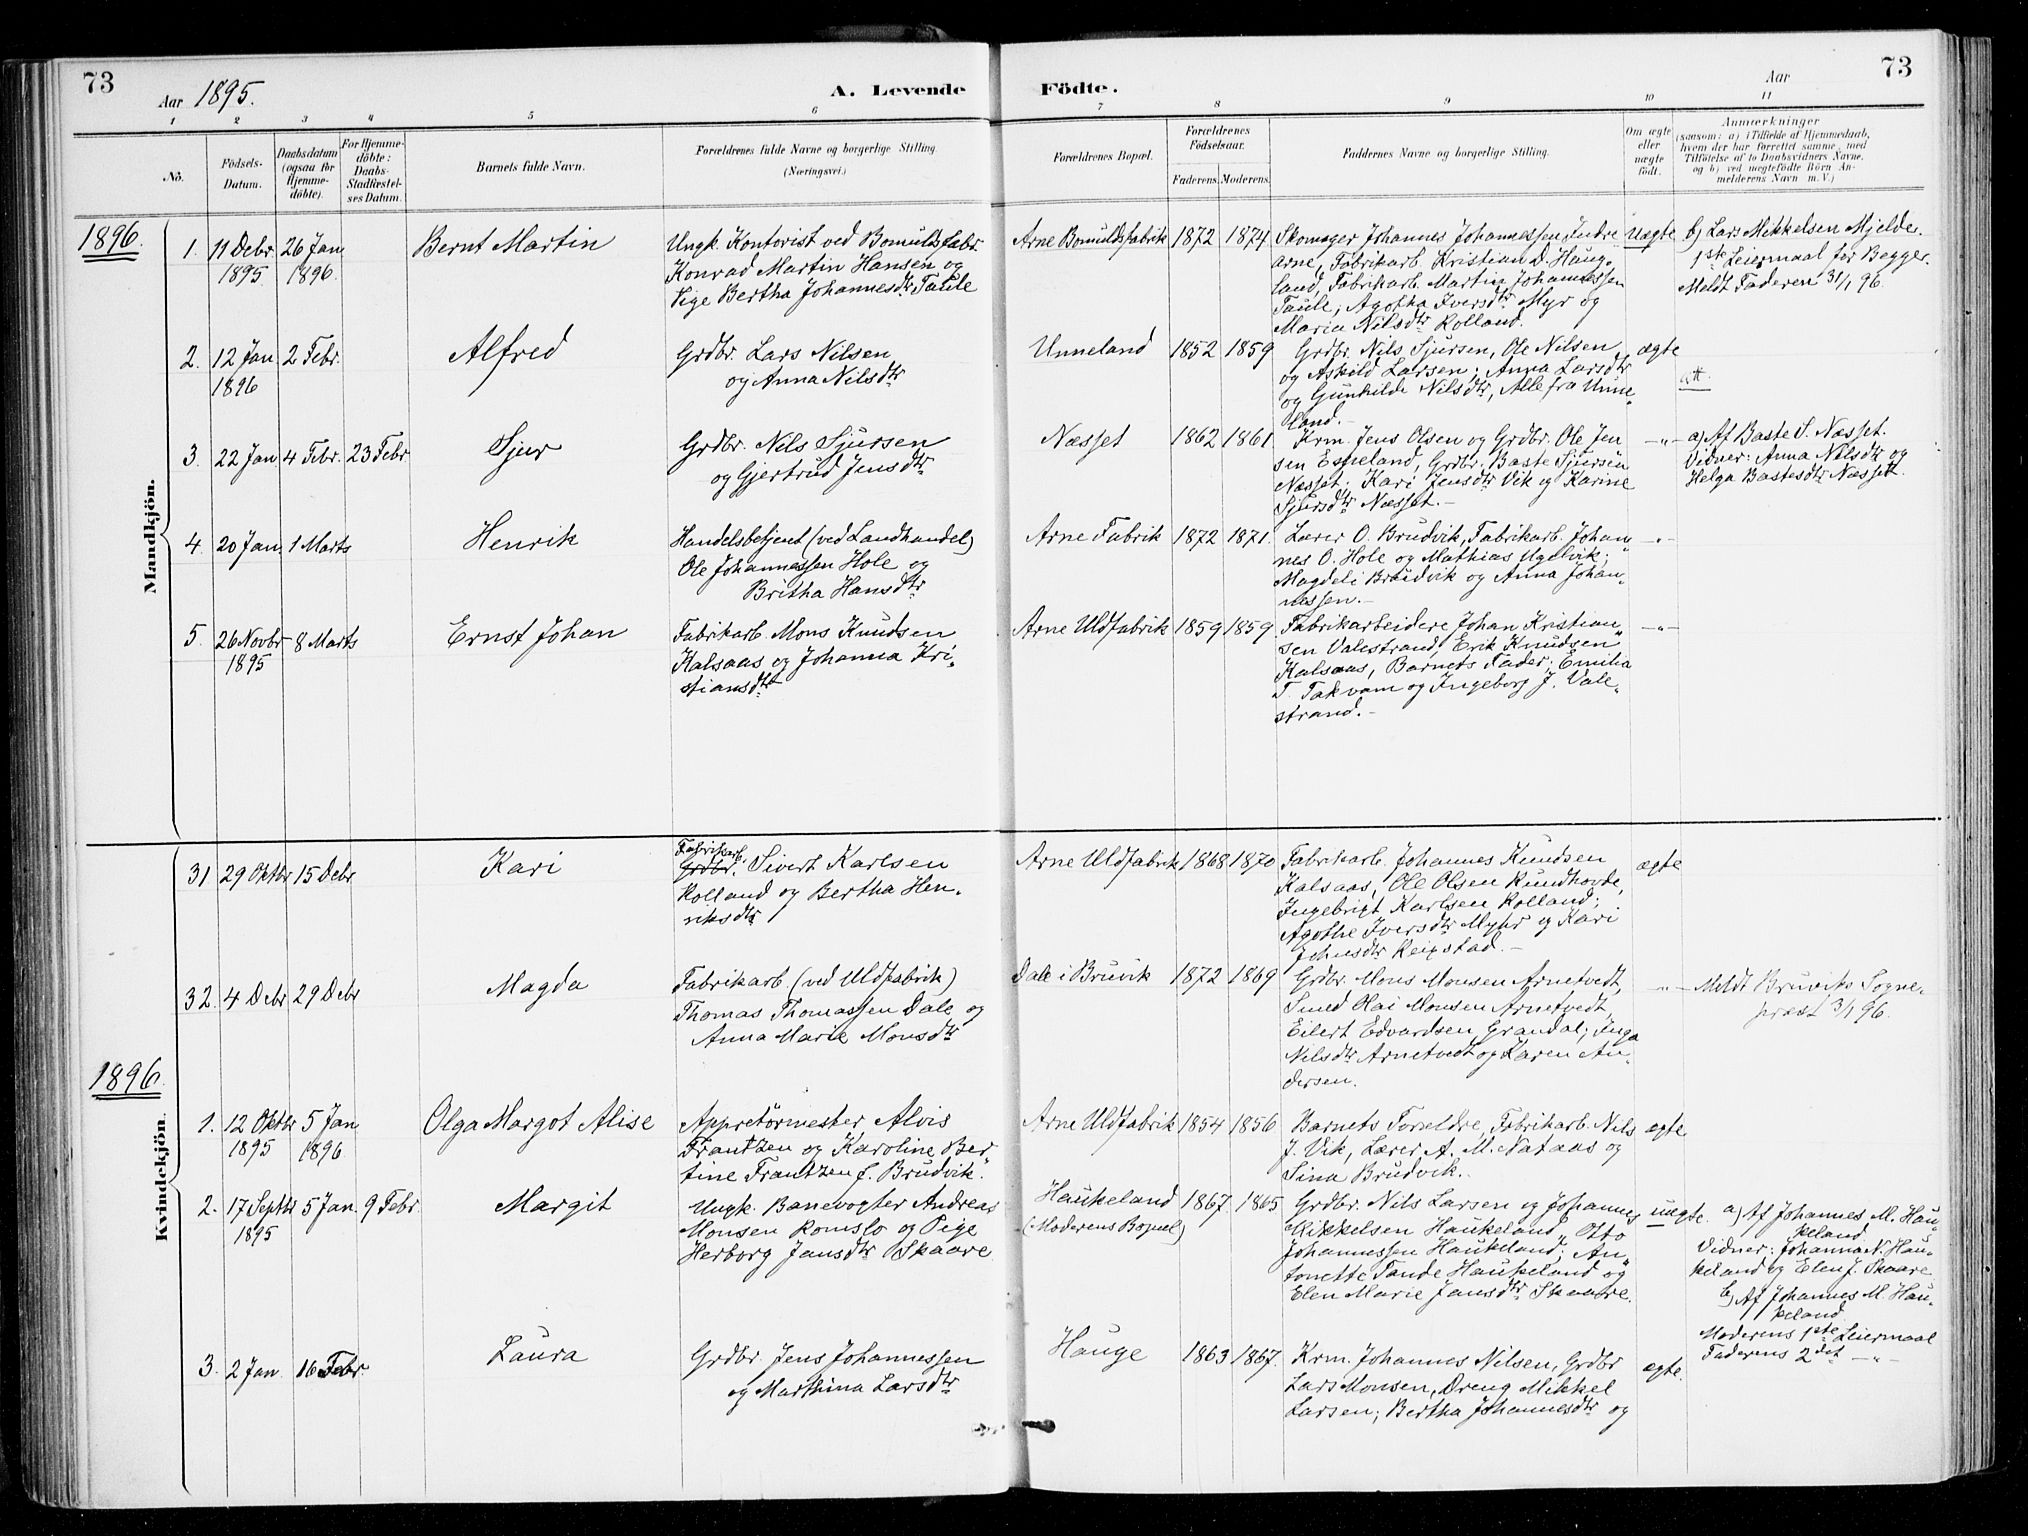 73
Aar 1895.
A. Levende Födte.
Aar
73
1 2 3 4 5 6 7 8 9 10 11
No.
Födsels-Datum.
Daabsdatum (ogsaa for Hjemme-döbte).
For Hjemme-döbte: Daabs-Stadfæstel-ses Datum.
Barnets fulde Navn.
Forældrenes fulde Navne og borgerlige Stilling. (Næringsvei.)
Forældrenes Bopæl.
Forældrenes Födselsaar.
Faderens. Moderens.
Faddernes Navne og borgerlige Stilling.
Om ægte eller uægte födt.
Anmærkninger
(saasom: a) i Tilfælde af Hjemmedaab, hvem der har forrettet samme, med Tilföielse af to Daabsvidners Navne, og b) ved uægtefödte Börn Anmelderens Navn m. V.)
Mandkjön.
1896.
1. 11 Debr 1895 26 Jan 1896. Bernt Martin
Ungk. Kontorist ved Bomuldsfabr.
Konrad Martin Hansen og
Pige Bertha Johannesdtr Taule
Arne Bomuldsfabrik 1872 1874
Skomager Johannes Johannessen Indre
Arne, Fabrikarb. Kristian D. Haug-
land, Fabrikarb. Martin Johannessen
Taule; Agotha Iversdtr Myr og
Maria Nilsdtr Rolland.
Uægte
b) Lars Mikkelsen Mjelde.
1ste Leiermaal for Begge.
Meldt Faderen 31/1 96.
2. 12 Jan 1896 2 Febr. Alfred
Grdbr. Lars Nilsen
og Anna Nilsdtr
Unneland 1852 1859
Grdbr. Nils Sjursen, Ole Nilsen
og Askild Larsen; Anna Larsdtr
og Gunhilde Nilsdtr, Alle fra Unne-
land.
ægte
att.
3. 22 Jan 4 Febr. 23 Febr Sjur
Grdbr. Nils Sjursen
og Gjertrud Jensdtr
Næsset 1862 1861
Krm. Jens Olsen og Grdbr. Ole Jen
sen Espeland, Grdbr. Baste Sjursen
Næsset; Kari Jensdtr Vik og Karine
Sjursdtr Næsset.-
-"-
a) Af Baste S. Næsset.
Vidner: Anna Nilsdtr og
Helga Bastesdtr Næsset.
4. 20 Jan 1 Marts Henrik
Handelsbetjent (ved Landhandel)
Ole Johannessen Hole og
Britha Hansdtr
Arne Fabrik 1872 1871.
Lærer O. Brudvik, Fabrikarb. Johan-
nes O. Hole og Mathias Ugelvik;
Magdeli Brudvik og Anna Johan-
nessen.-
-"-
5. 26 Novbr 1895 8 Marts Ernst Johan
Fabrikarb. Mons Knudsen
Kalsaas og Johanna Kri-
stiansdtr
Arne Uldfabrik 1859 1859
Fabrikarbeidere Johan Kristian-
sen Valestrand, Erik Knudsen
Kalsaas, Barnets Fader; Emilia
T. Takvam og Ingeborg J. Vale-
strand.-
-"-
Kvindekjön.
31 29 Oktbr 15 Debr Kari
Fabrikarb.
Grdbr. Sivert Karlsen
Rolland og Bertha Hen-
riksdtr
Arne Uldfabrik 1868 1870
Fabrikarb. Johannes Knudsen
Kalsaas, Ole Olsen Rundhovde,
Ingebrigt Karlsen Rolland;
Agothe Iversdtr Myhr og Kari
Johnsdtr Reigstad.-
ægte
32. 4 Debr 29 Debr Magda
Fabrikarb. (ved Uldfabrik)
Thomas Thomassen Dale og
Anna Marie Monsdtr
Dale i Bruvik 1872 1869
Grdbr. Mons Monsen Arnetvedt,
Smed Olai Monsen Arnetvedt,
Eilert Edvardsen Grandal; Inga
Nilsdtr Arnetvedt og Karen An-
dersen.
-"-
Meldt Bruviks Sogne-
præst 3/1 96.
1896
1. 12 Oktbr 1895 5 Jan 1896 Olga Margot Alise
Appretörmester Alvis
Frantzen og Karoline Ber-
tine Frantzen f. Brudvik.
Arne Uldfabrik 1854 1856
Barnets Forældre, Fabrikarb. Nils
J. Vik, Lærer A. M. Nataas og
Sina Brudvik.
ægte
2. 17 Septbr 1895 5 Jan. 9 Febr. Margit
Ungk. Banevogter Andreas
Monsen Romslo og Pige
Herborg Jansdtr Skaare
Haukeland
(Moderens Bopæl)
1867. 1865
Grdbr. Nils Larsen og Johannes
Mikkelsen Haukeland, Otto
Johannessen Haukeland; An-
tonette Tande Haukeland og
Elen Marie Jansdtr Skaare.
uægte.
a) Af Johannes M. Hau-
keland
Vidner: Johanna N. Hau-
keland og Elen J. Skaare
b) Af Johannes M. Hau-
keland
Moderens 1ste Leiermaal
Faderens 2det -"-
3. 2 Jan 16 Febr. Laura
Grdbr. Jens Johannessen
og Marthina Larsdtr
Hauge 1863 1867.
Krm. Johannes Nilsen, Grdbr
Lars Monsen, Dreng Mikkel
Larsen; Bertha Johannesdtr og
ægte.